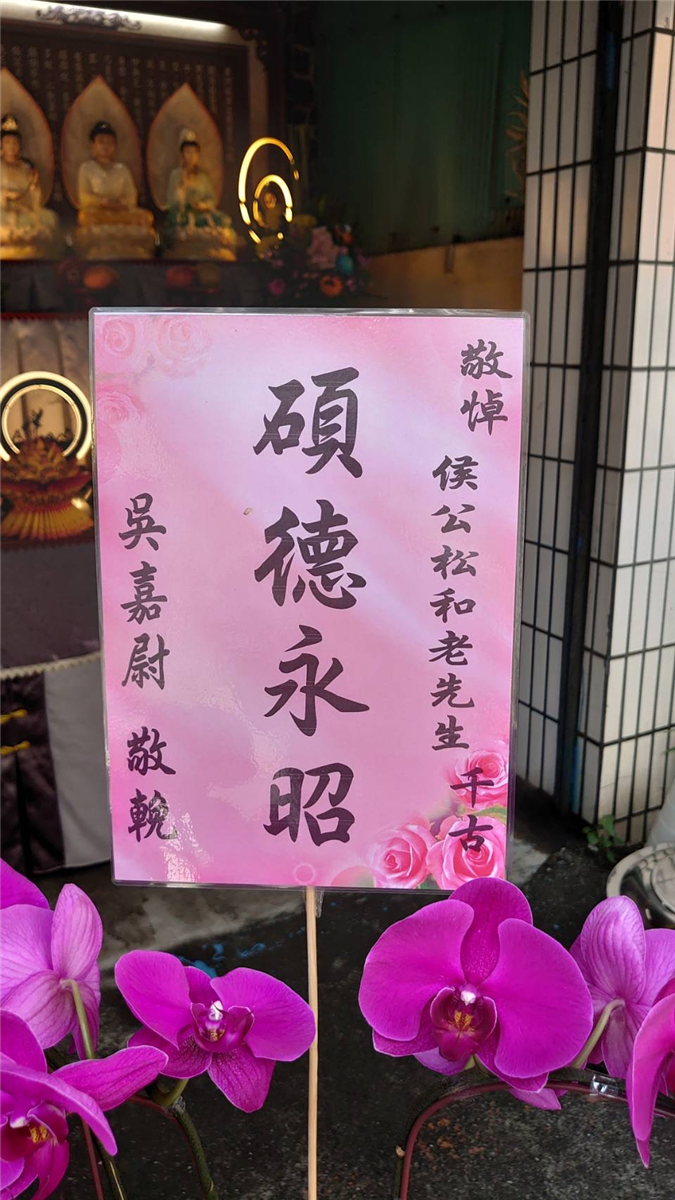 敬悼
侯公松和老先生 千古
碩德永昭
吳嘉尉 敬輓